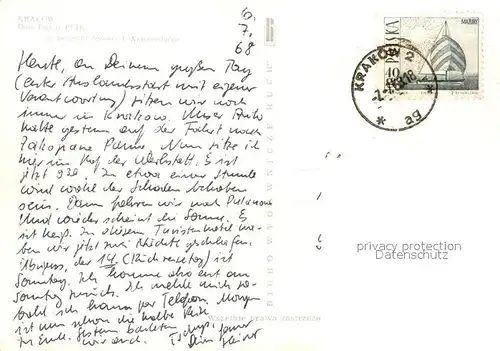 KRAKÓW
6.
7.
68
Heute, an Deinem großen Tag
(erster Auslandsstart mit eigener
Verantwortung) sitzen wir noch
immer in Krakow. Unser Auto
hatte gestern auf der Fahrt nach
Zakopane Panne. Nun sitze ich
hier im Hof der Werkstatt. Es ist
jetzt 9 In etwa einer Stunde
wird wohl der Schaden behoben
sein. Dann fahren wir nach
Und wieder scheint die Sonne. Es
ist heiß. In diesem Touristenhotel ha-
ben wir jetzt zwei Nächte geschlafen.
Übrigens, der 14. (Rückreisetag) ist
Sonntag. Ich komme also erst am
Sonntag zurück. Ich melde mich so-
bald ich kann per Telefon. Morgen
ist nun schon die halbe Reise
zu Ende. Gestern
wir auch. Tschüß
Dein
BIURO WYDAWNICZE RUCH
Wszelkie prawa zastrzeżone
POLSKA
40
KRAKÓW 2
ag
privacy protection
Datenschutz